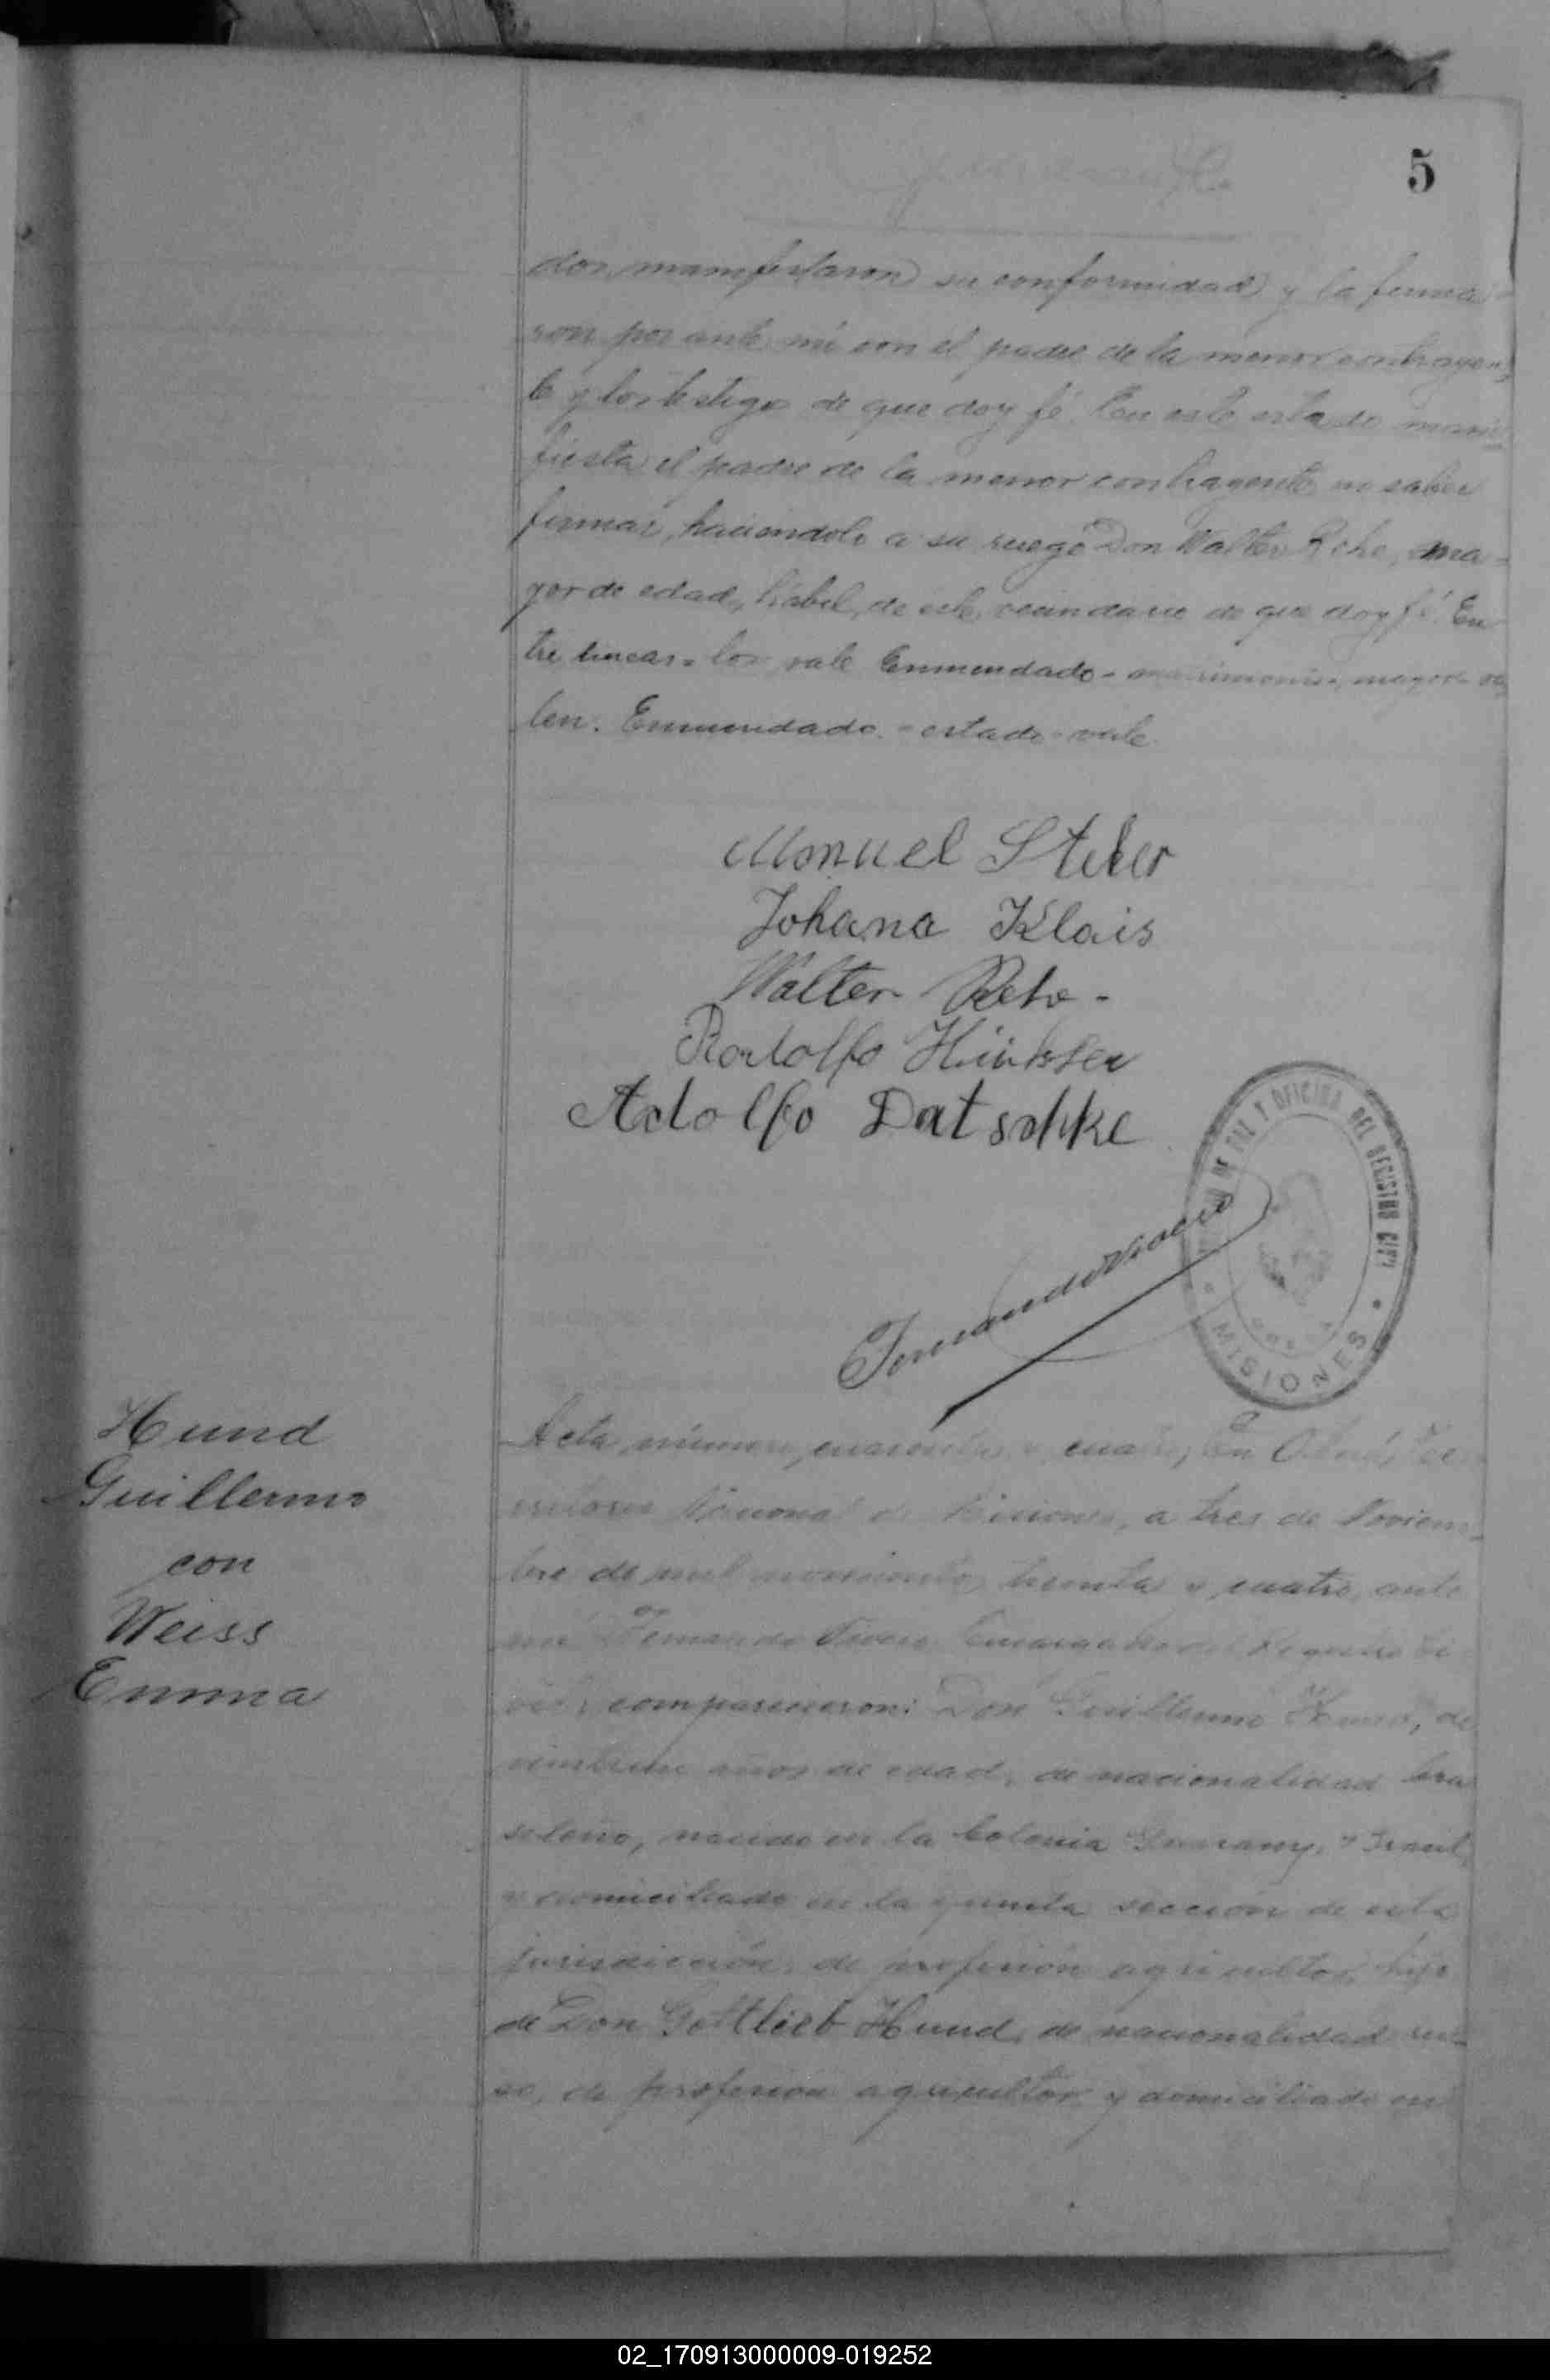 5
dos, manifestaron su conformidad y la firma-
ron por ante mí con el padre de la menor contrayen-
te y los testigos de que doy fé. En este estado mani-
fiesta el padre de la menor contrayente no saber
firmar, haciendolo a su ruego Don Walter Rehe, ma-
yor de edad, hábil, de este vecindario de que doy fé. En
tre lineas - los vale Enmendado - matrimonio, mayor va
len. Enmendado - estado - vale
Manuel
Johana Klais
Walter Rehe -
Rodolfo
Adolfo Datschke
DE PAZ Y OFICINA DEL REGISTRO CIVIL
MISIONES
Hund
Guillermo
con
Weiss
Emma
Acta número cuarenta y cuatro, En Oberá, Te-
rritorio Nacional de Misiones, a tres de Noviem-
bre de mil novecientos treinta y cuatro, ante
mí Fernando Encargado del Registro Ci-
vil, comparecieron: Don Guillermo Hund, de
años de edad, de nacionalidad bra
sileño, nacido en la Colonia Guarany, Brasil,
y domiciliado en la quinta sección de esta
jurisdicción, de profesión agricultor, hijo
de Don Gottlieb Hund, de nacionalidad ru-
so, de profesión agricultor y domiciliado en
02_170913000009-019252